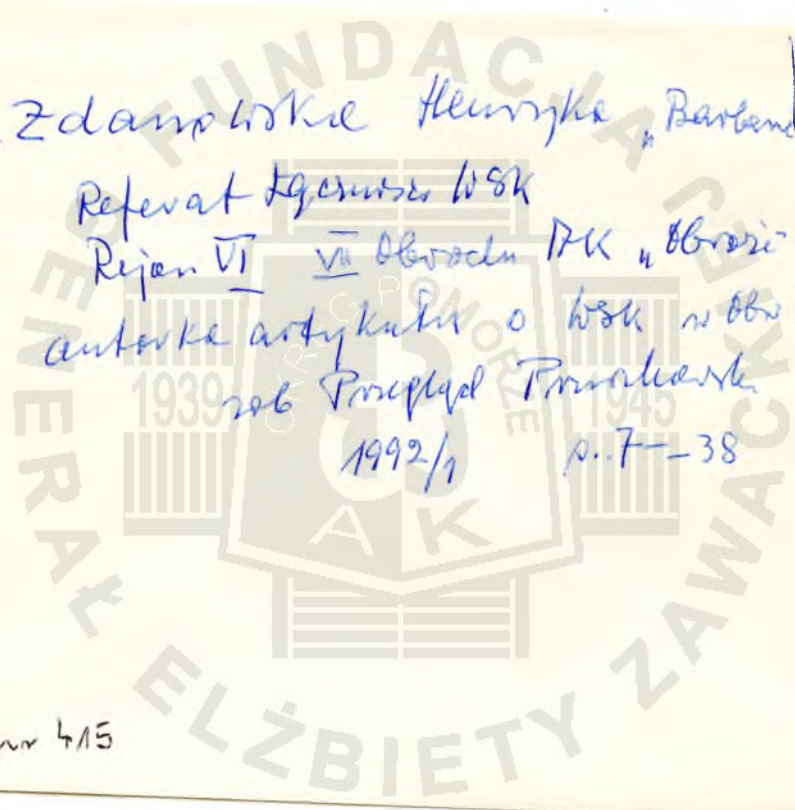 Zdanowska Henryka „Barbara
Referat Łączności WSK
Rejon VI VII Obwodu AK „Obroża
autorka artykułu o WSK w Obw
zob Przegląd Pruszkowski
1992/1 s. 7–38
nr 415
FUNDACJA GENERAŁ ELŻBIETY ZAWACKIEJ
ARG. POMORZE
1939 1945
AK